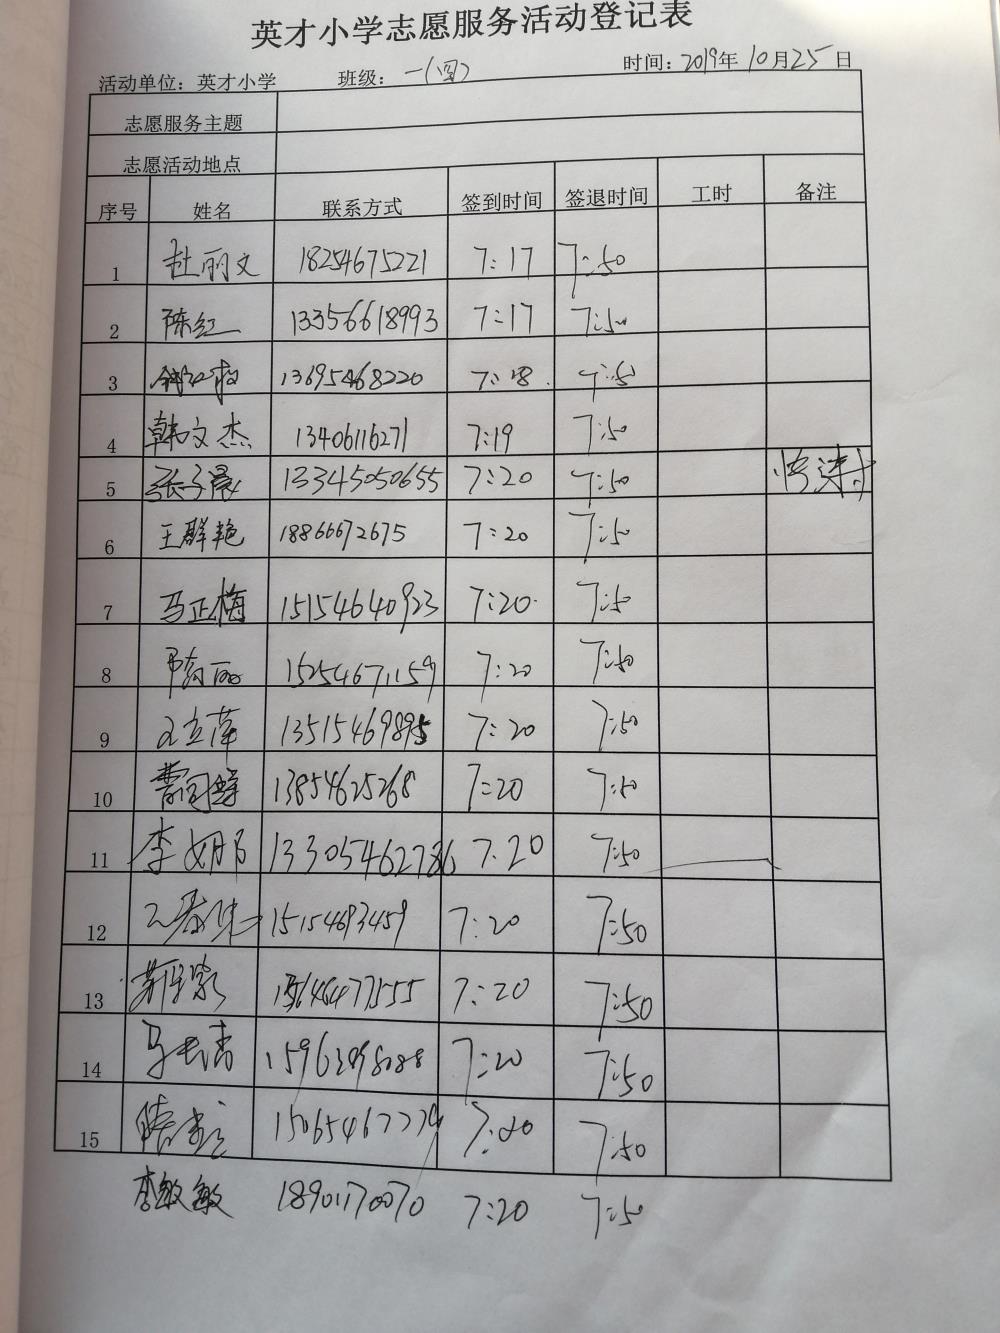 英才小学志愿服务活动登记表
活动单位：英才小学 班级：一(四) 时间：2019年10月25日
志愿服务主题
志愿活动地点
序号 姓名 联系方式 签到时间 签退时间 工时 备注
1 杜丽文 18254675221 7:17 7:50
2 陈红 13356618993 7:17 7:50
3 13695468220 7:18 7:50
4 韩文杰 13406116271 7:19 7:50
5 张子晨 13345050655 7:20 7:50
6 王群艳 18866672675 7:20 7:50
7 马正梅 15154640923 7:20 7:50
8 15254671159 7:20 7:50
9 13515469895 7:20 7:50
10 13854625268 7:20 7:50
11 李娜 13305462786 7.20 7:50
12 15154693459 7:20 7:50
13 7:20 7:50
14 7:20 7:50
15 7:20 7:50
李敏敏 18901170070 7:20 7:50